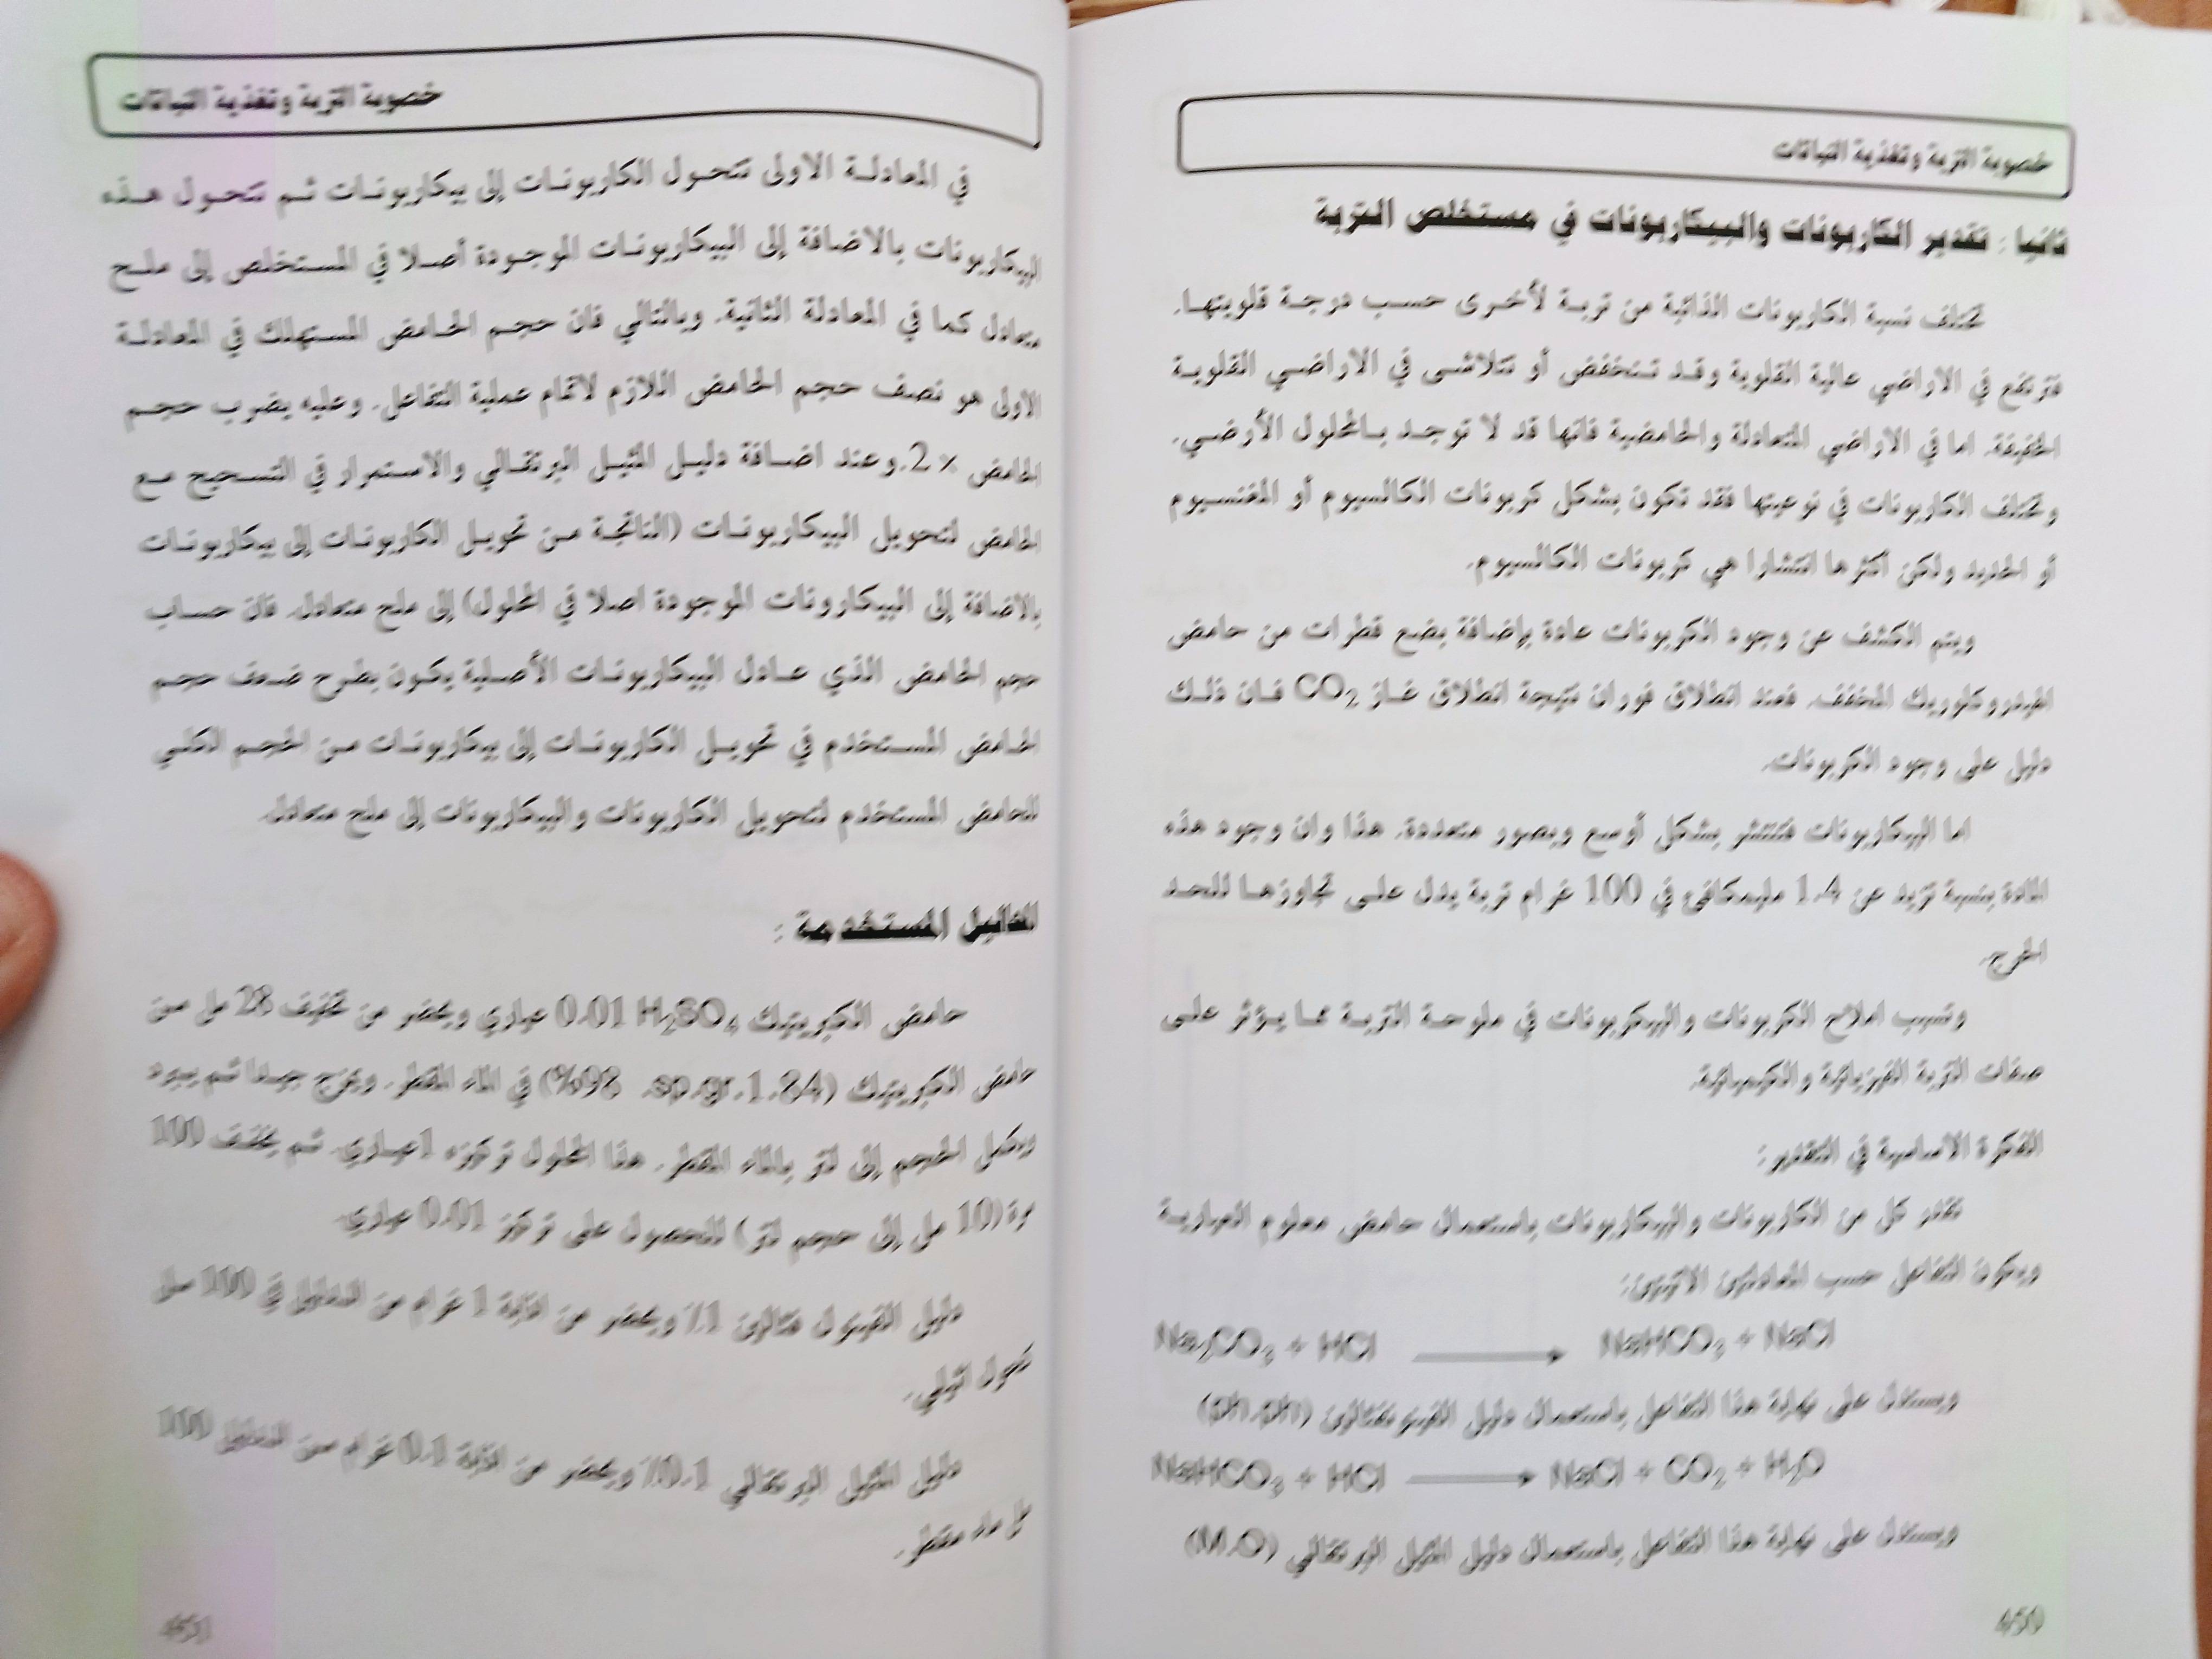 خصوبة التربة وتغذية النباتات
ثانيا : تقدير الكاربونات والبيكاربونات في مستخلص التربة
تختلف نسبة الكاربونات الذائبة من تربة لأخرى حسب درجة قلويتها.
فترتفع في الاراضي عالية القلوية وقد تنخفض أو تتلاشى في الاراضي القلوية
الخفيفة. اما في الاراضي المتعادلة والحامضية فانها قد لا توجد بالمحلول الأرضي.
وتختلف الكاربونات في نوعيتها فقد تكون بشكل كربونات الكالسيوم أو المغنسيوم
أو الحديد ولكن أكثرها انتشارا هي كربونات الكالسيوم.
ويتم الكشف عن وجود الكربونات عادة بإضافة بضع قطرات من حامض
الهيدروكلوريك المخفف. فعند انطلاق فوران نتيجة انطلاق غاز CO₂ فان ذلك
دليل على وجود الكربونات.
اما البيكاربونات فتنتشر بشكل أوسع وبصور متعددة. هذا وان وجود هذه
المادة بنسبة تزيد عن 1.4 مليمكافئ في 100 غرام تربة يدل على تجاوزها للحد
الحرج.
وتسبب املاح الكربونات والبيكربونات في ملوحة التربة مما يؤثر على
صفات التربة الفيزيائية والكيميائية.
الفكرة الأساسية في التقدير :
تقدر كل من الكاربونات والبيكاربونات باستعمال حامض معلوم العيارية
ويكون التفاعل حسب المعادلتين الاتيتين:
Na₂CO₃ + HCl ⟶ NaHCO₃ + NaCl
ويستدل على نهاية هذا التفاعل باستعمال دليل الفينونفثالين (ph.ph)
NaHCO₃ + HCl ⟶ NaCl + CO₂ + H₂O
ويستدل على نهاية هذا التفاعل باستعمال دليل المثيل البرتقالي (M.O)
450
خصوبة التربة وتغذية النباتات
في المعادلة الاولى تتحول الكاربونات إلى بيكاربونات ثم تتحول هذه
البيكاربونات بالاضافة إلى البيكاربونات الموجودة أصلا في المستخلص إلى ملح
متعادل كما في المعادلة الثانية. وبالتالي فان حجم الحامض المستهلك في المعادلة
الاولى هو نصف حجم الحامض اللازم لاتمام عملية التفاعل. وعليه يضرب حجم
الحامض × 2. وعند اضافة دليل المثيل البرتقالي والاستمرار في التسحيح مع
الحامض لتحويل البيكاربونات (الناتجة من تحويل الكاربونات إلى بيكاربونات
بالاضافة إلى البيكارونات الموجودة اصلا في المحلول) إلى ملح متعادل. فان حساب
حجم الحامض الذي عادل البيكاربونات الأصلية يكون بطرح ضعف حجم
الحامض المستخدم في تحويل الكاربونات إلى بيكاربونات من الحجم الكلي
للحامض المستخدم لتحويل الكاربونات والبيكاربونات إلى ملح متعادل.
المحاليل المستخدمة :
حامض الكبريتيك 0.01 H₂SO₄ عياري ويحضر من تخفيف 28 مل من
حامض الكبريتيك (98% sp.gr.1.84) في الماء المقطر. ويمزج جيدا ثم يبرد
ويكمل الحجم إلى لتر بالماء المقطر. هذا المحلول تركيزه 1 عياري. ثم يخفف 100
مرة (10 مل إلى حجم لتر) للحصول على تركيز 0.01 عياري.
دليل الفينول فثالين 1٪ ويحضر من اذابة 1 غرام من الدليل في 100 مل
كحول اثيلي.
دليل المثيل البرتقالي 0.1٪ ويحضر من اذابة 0.1 غرام من الدليل 100
مل ماء مقطر.
451